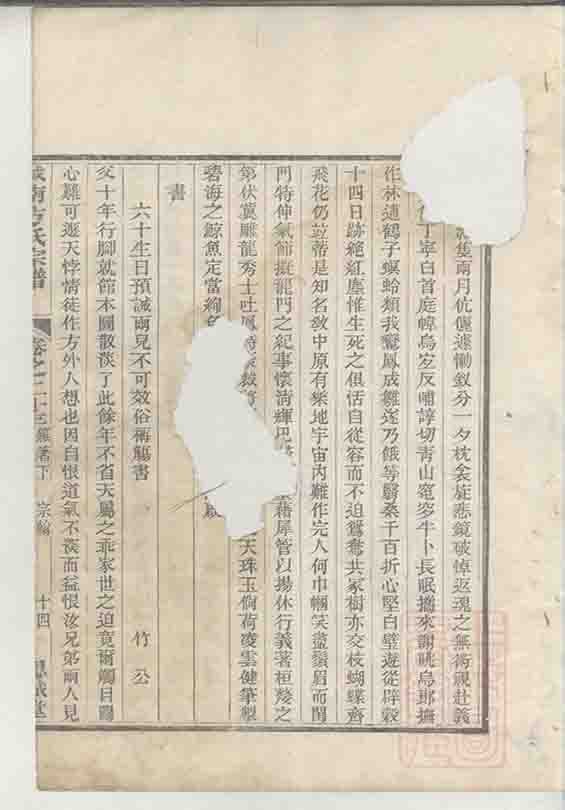 隻兩月伉儷遽慟釵分一夕枕衾旋悲鏡破悼返魂之無術視赴義
丁寧白首庭幃烏安反哺諄切青山窀穸牛卜長眠攜來謝朓烏郎撫
作林逋鶴子螟蛉類我鸞鳳成雛遂乃餓等翳桑千百折心堅白璧遊從辟穀
十四日跡絕紅塵惟生死之俱活自從容而不迫鴛鴦共冢樹亦交枝蝴蝶齊
飛花仍竝蒂是知名敎中原有樂地宇宙內難作完人何巾幗笑盡鬚眉而閨
門特伸氣節擬龍門之紀事懷清輝巴 藉犀管以揚休行義著桓嫠之
第伏冀雕龍秀士吐鳳 天珠玉倘荷凌雲健筆製
碧海之鯨魚定當絢
書
六十生日預誡兩兒不可效俗稱觴書 竹公
父十年行腳就節本圖散淡了此餘年不省天屬之乖家世之迫竟爾觸目關
心難可遯天悖情徒作方外人想也因自恨道氣不淡而益恨汝兄弟兩人見
城南方氏宗譜 卷之二十三 雜著下 宗翰 十四 思誠堂